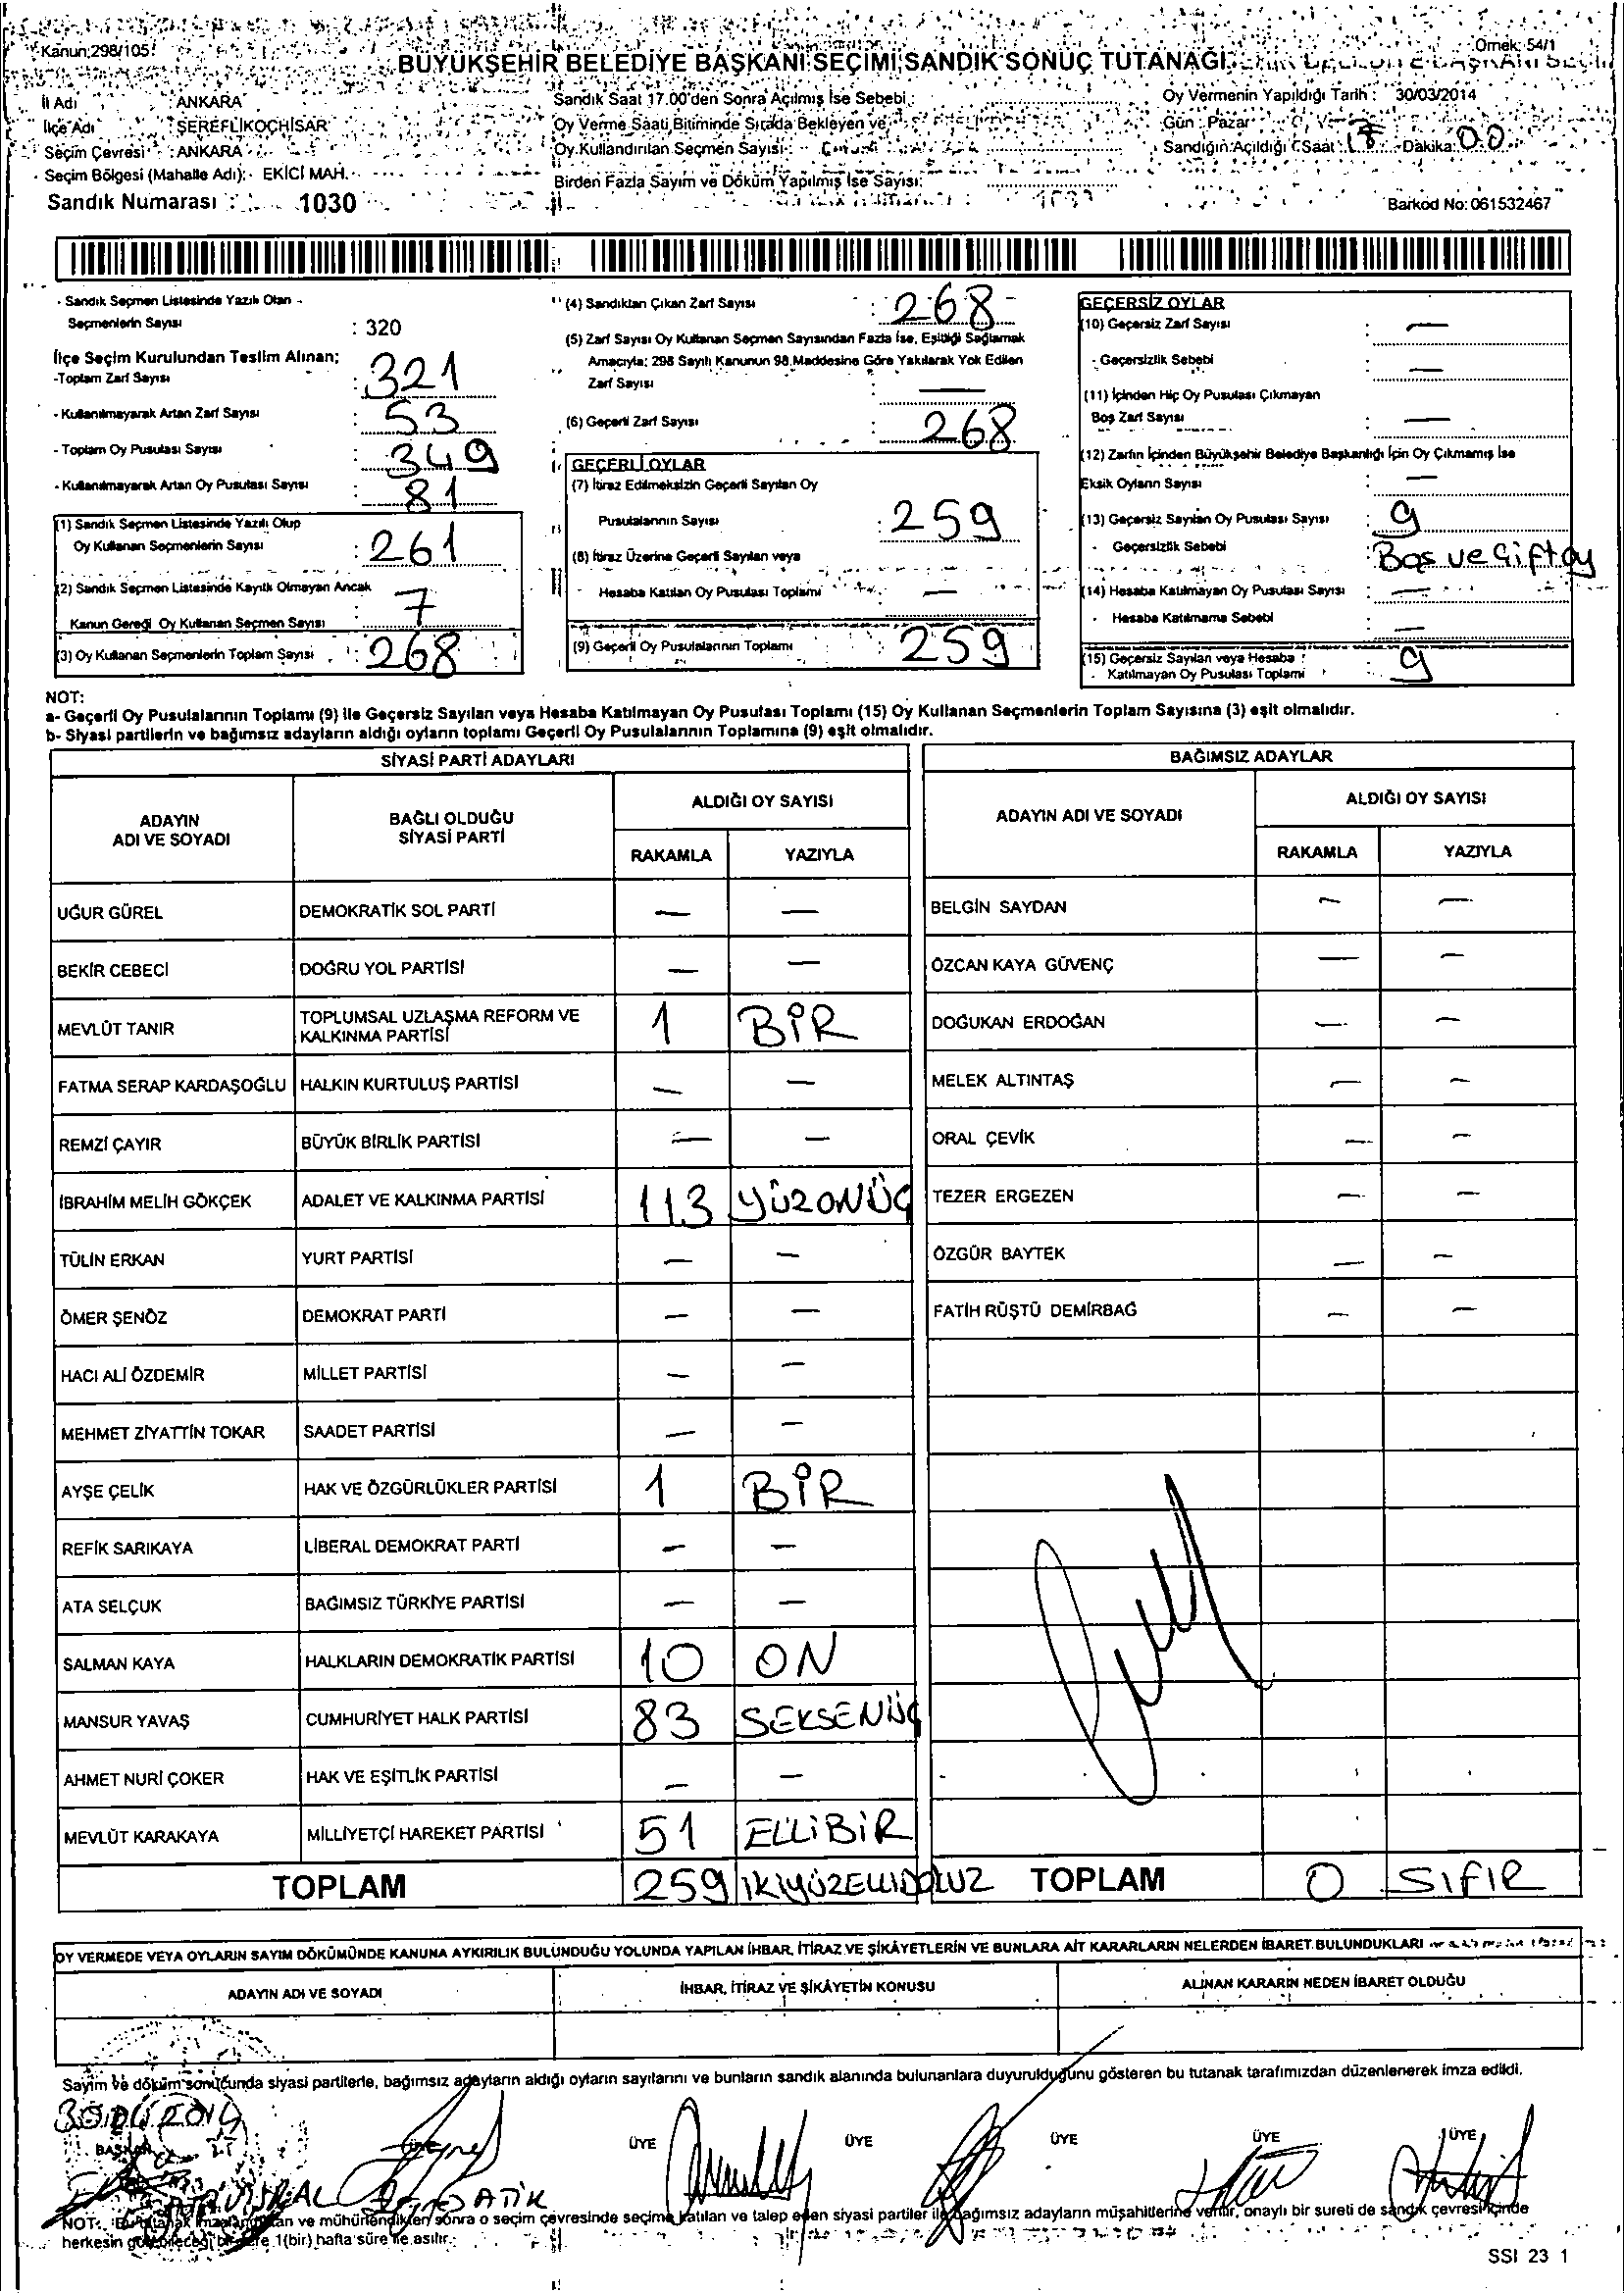 Kanun:298/105
Örnek: 54/1
BÜYÜKŞEHİR BELEDİYE BAŞKANI SEÇİMİ SANDIK SONUÇ TUTANAĞI
İl Adı : ANKARA
İlçe Adı : ŞEREFLİKOÇHİSAR
Seçim Çevresi : ANKARA
Seçim Bölgesi (Mahalle Adı): EKİCİ MAH.
Sandık Numarası : 1030
Sandık Saat 17.00'den Sonra Açılmış İse Sebebi
Oy Verme Saati Bitiminde Sırada Bekleyen ve
Oy Kullandırılan Seçmen Sayısı:
Birden Fazla Sayım ve Döküm Yapılmış İse Sayısı:
Oy Vermenin Yapıldığı Tarih : 30/03/2014
Gün : Pazar
Sandığın Açıldığı Saat : 17 Dakika: 00
Barkod No: 061532467
- Sandık Seçmen Listesinde Yazılı Olan
Seçmenlerin Sayısı : 320
İlçe Seçim Kurulundan Teslim Alınan;
-Toplam Zarf Sayısı : 321
- Kullanılmayarak Artan Zarf Sayısı : 53
- Toplam Oy Pusulası Sayısı : 349
- Kullanılmayarak Artan Oy Pusulası Sayısı : 81
(1) Sandık Seçmen Listesinde Yazılı Olup
Oy Kullanan Seçmenlerin Sayısı : 261
(2) Sandık Seçmen Listesinde Kayıtlı Olmayan Ancak
Kanun Gereği Oy Kullanan Seçmen Sayısı : 7
(3) Oy Kullanan Seçmenlerin Toplam Sayısı : 268
(4) Sandıktan Çıkan Zarf Sayısı : 268
(5) Zarf Sayısı Oy Kullanan Seçmen Sayısından Fazla İse, Eşitliği Sağlamak
Amacıyla; 298 Sayılı Kanunun 98.Maddesine Göre Yakılarak Yok Edilen
Zarf Sayısı : —
(6) Geçerli Zarf Sayısı : 268
GEÇERLİ OYLAR
(7) İtiraz Edilmeksizin Geçerli Sayılan Oy
Pusulalarının Sayısı : 259
(8) İtiraz Üzerine Geçerli Sayılan veya
Hesaba Katılan Oy Pusulası Toplamı : —
(9) Geçerli Oy Pusulalarının Toplamı : 259
GEÇERSİZ OYLAR
(10) Geçersiz Zarf Sayısı : —
- Geçersizlik Sebebi : —
(11) İçinden Hiç Oy Pusulası Çıkmayan
Boş Zarf Sayısı : —
(12) Zarfın İçinden Büyükşehir Belediye Başkanlığı İçin Oy Çıkmamış İse
Eksik Oyların Sayısı : —
(13) Geçersiz Sayılan Oy Pusulası Sayısı : 9
- Geçersizlik Sebebi : Boş ve Çift oy
(14) Hesaba Katılmayan Oy Pusulası Sayısı : —
- Hesaba Katılmama Sebebi : —
(15) Geçersiz Sayılan veya Hesaba
Katılmayan Oy Pusulası Toplamı : 9
NOT:
a- Geçerli Oy Pusulalarının Toplamı (9) ile Geçersiz Sayılan veya Hesaba Katılmayan Oy Pusulası Toplamı (15) Oy Kullanan Seçmenlerin Toplam Sayısına (3) eşit olmalıdır.
b- Siyasi partilerin ve bağımsız adayların aldığı oyların toplamı Geçerli Oy Pusulalarının Toplamına (9) eşit olmalıdır.
SİYASİ PARTİ ADAYLARI
ADAYIN ADI VE SOYADI BAĞLI OLDUĞU SİYASİ PARTİ ALDIĞI OY SAYISI
RAKAMLA YAZIYLA
UĞUR GÜREL DEMOKRATİK SOL PARTİ — —
BEKİR CEBECİ DOĞRU YOL PARTİSİ — —
MEVLÜT TANIR TOPLUMSAL UZLAŞMA REFORM VE KALKINMA PARTİSİ 1 BİR
FATMA SERAP KARDAŞOĞLU HALKIN KURTULUŞ PARTİSİ — —
REMZİ ÇAYIR BÜYÜK BİRLİK PARTİSİ — —
İBRAHİM MELİH GÖKÇEK ADALET VE KALKINMA PARTİSİ 113 YÜZONÜÇ
TÜLİN ERKAN YURT PARTİSİ — —
ÖMER ŞENÖZ DEMOKRAT PARTİ — —
HACI ALİ ÖZDEMİR MİLLET PARTİSİ — —
MEHMET ZİYATTİN TOKAR SAADET PARTİSİ — —
AYŞE ÇELİK HAK VE ÖZGÜRLÜKLER PARTİSİ 1 BİR
REFİK SARIKAYA LİBERAL DEMOKRAT PARTİ — —
ATA SELÇUK BAĞIMSIZ TÜRKİYE PARTİSİ — —
SALMAN KAYA HALKLARIN DEMOKRATİK PARTİSİ 10 ON
MANSUR YAVAŞ CUMHURİYET HALK PARTİSİ 83 SEKSENÜÇ
AHMET NURİ ÇOKER HAK VE EŞİTLİK PARTİSİ — —
MEVLÜT KARAKAYA MİLLİYETÇİ HAREKET PARTİSİ 51 ELLİBİR
TOPLAM 259 İKİYÜZELLİDOKUZ
BAĞIMSIZ ADAYLAR
ADAYIN ADI VE SOYADI ALDIĞI OY SAYISI
RAKAMLA YAZIYLA
BELGİN SAYDAN — —
ÖZCAN KAYA GÜVENÇ — —
DOĞUKAN ERDOĞAN — —
MELEK ALTINTAŞ — —
ORAL ÇEVİK — —
TEZER ERGEZEN — —
ÖZGÜR BAYTEK — —
FATİH RÜŞTÜ DEMİRBAĞ — —
TOPLAM 0 SIFIR
OY VERMEDE VEYA OYLARIN SAYIM DÖKÜMÜNDE KANUNA AYKIRILIK BULUNDUĞU YOLUNDA YAPILAN İHBAR, İTİRAZ VE ŞİKÂYETLERİN VE BUNLARA AİT KARARLARIN NELERDEN İBARET BULUNDUKLARI
ADAYIN ADI VE SOYADI İHBAR, İTİRAZ VE ŞİKÂYETİN KONUSU ALINAN KARARIN NEDEN İBARET OLDUĞU
Sayım ve döküm sonucunda siyasi partilerle, bağımsız adayların aldığı oyların sayılarını ve bunların sandık alanında bulunanlara duyurulduğunu gösteren bu tutanak tarafımızdan düzenlenerek imza edildi.
BAŞKAN ÜYE ÜYE ÜYE ÜYE ÜYE
NOT: Bu tutanak imzalandıktan ve mühürlendikten sonra o seçim çevresinde seçime katılan ve talep eden siyasi partiler ile bağımsız adayların müşahitlerine verilir, onaylı bir sureti de sandık çevresi içinde
herkesin görebileceği bir yere 1(bir) hafta süre ile asılır.
SSI 23 1